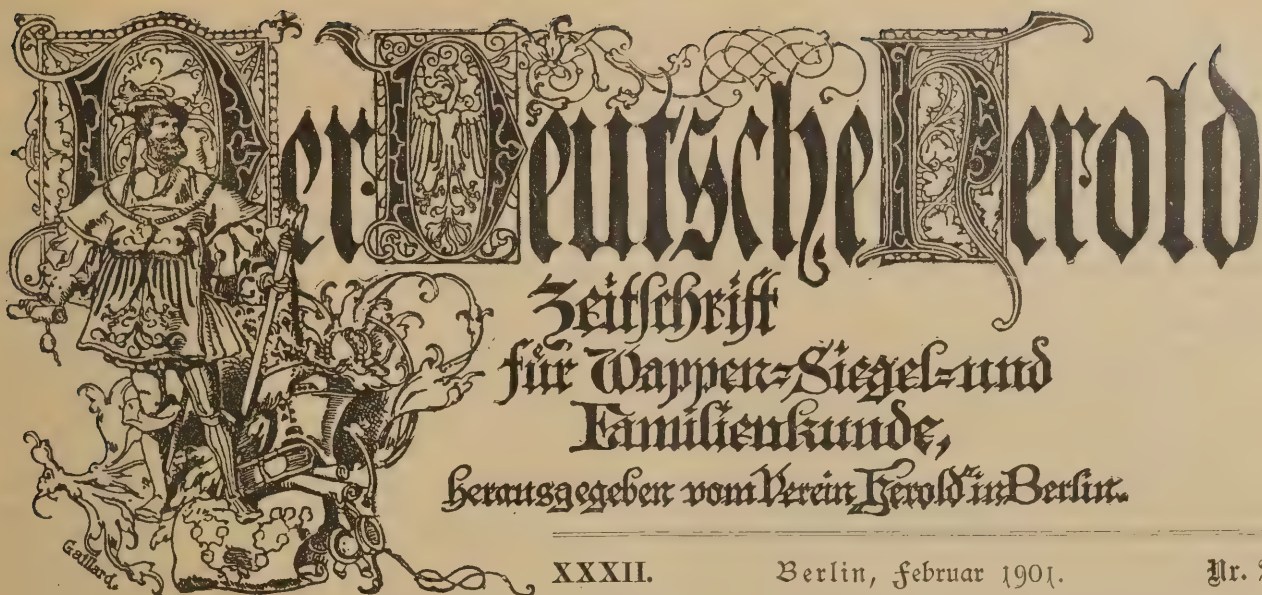 Der Deutsche Herold
Zeitschrift
für Wappen-Siegel-und
Familienkunde,
herausgegeben vom Verein Herold in Berlin.
Gaillard.
XXXII. Berlin, Februar 1901. Nr.